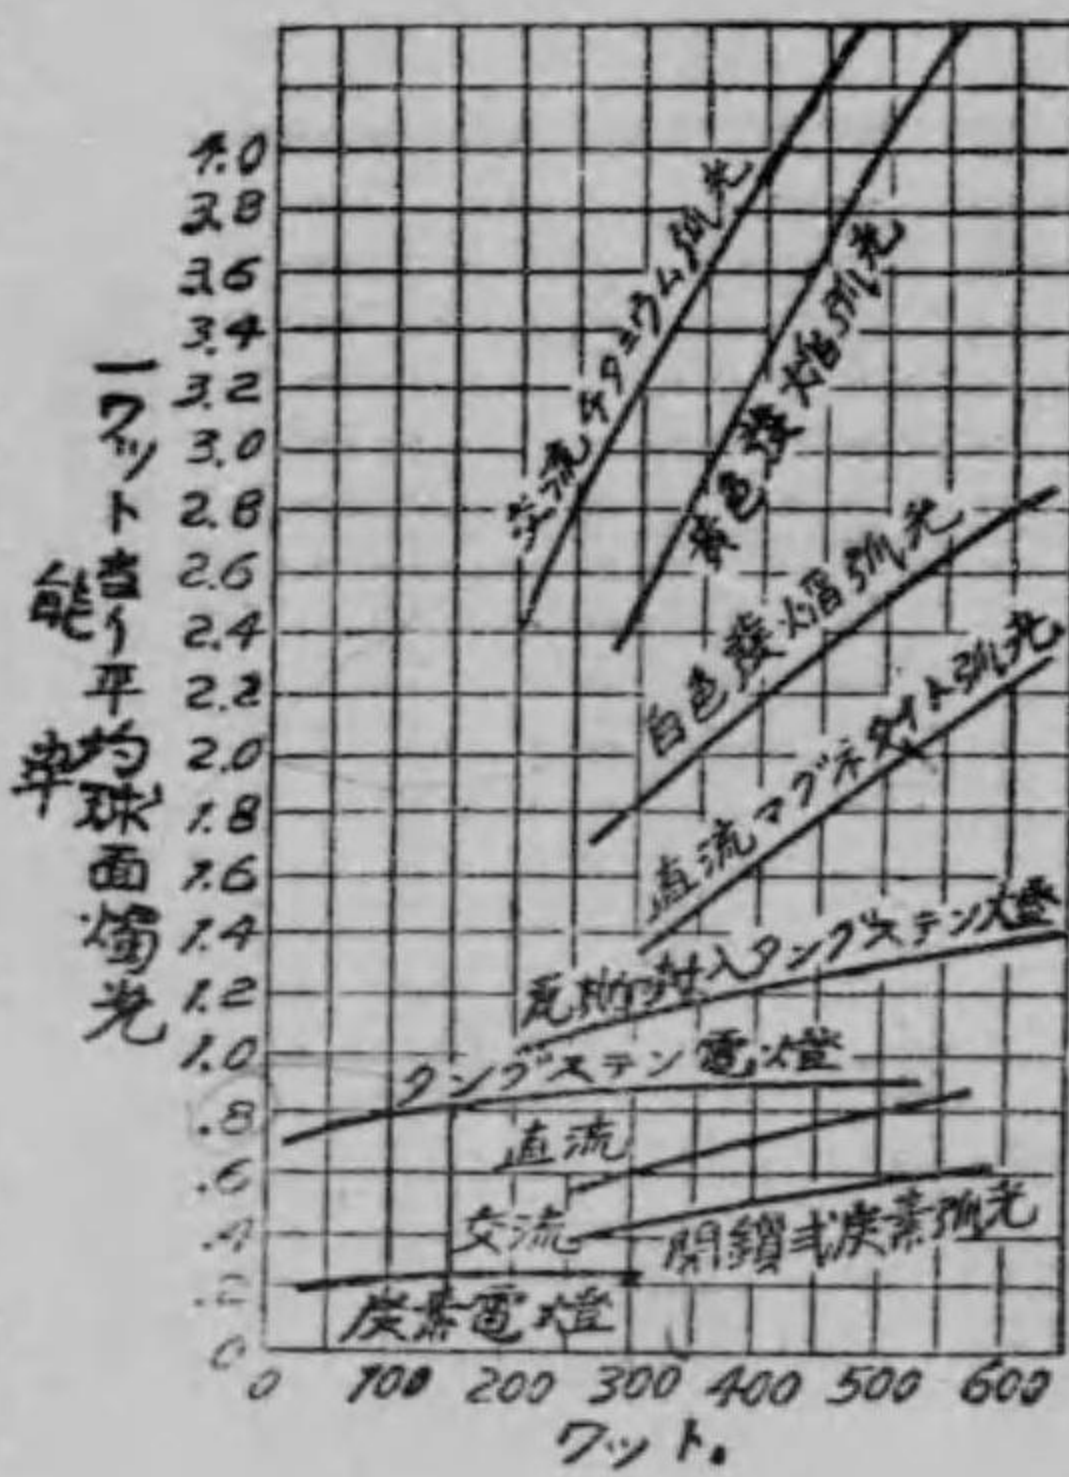 一ワット当り平均球面燭光
能率
4.0
3.8
3.6
3.4
3.2
3.0
2.8
2.6
2.4
2.2
2.0
1.8
1.6
1.4
1.2
1.0
.8
.6
.4
.2
0
交流チタニウム弧光
黄色發焔弧光
白色發焔弧光
直流マグネタイト弧光
瓦斯封入タングステン燈
タングステン電燈
直流
交流
閉鎖式炭素弧光
炭素電燈
0 100 200 300 400 500 600
ワット。